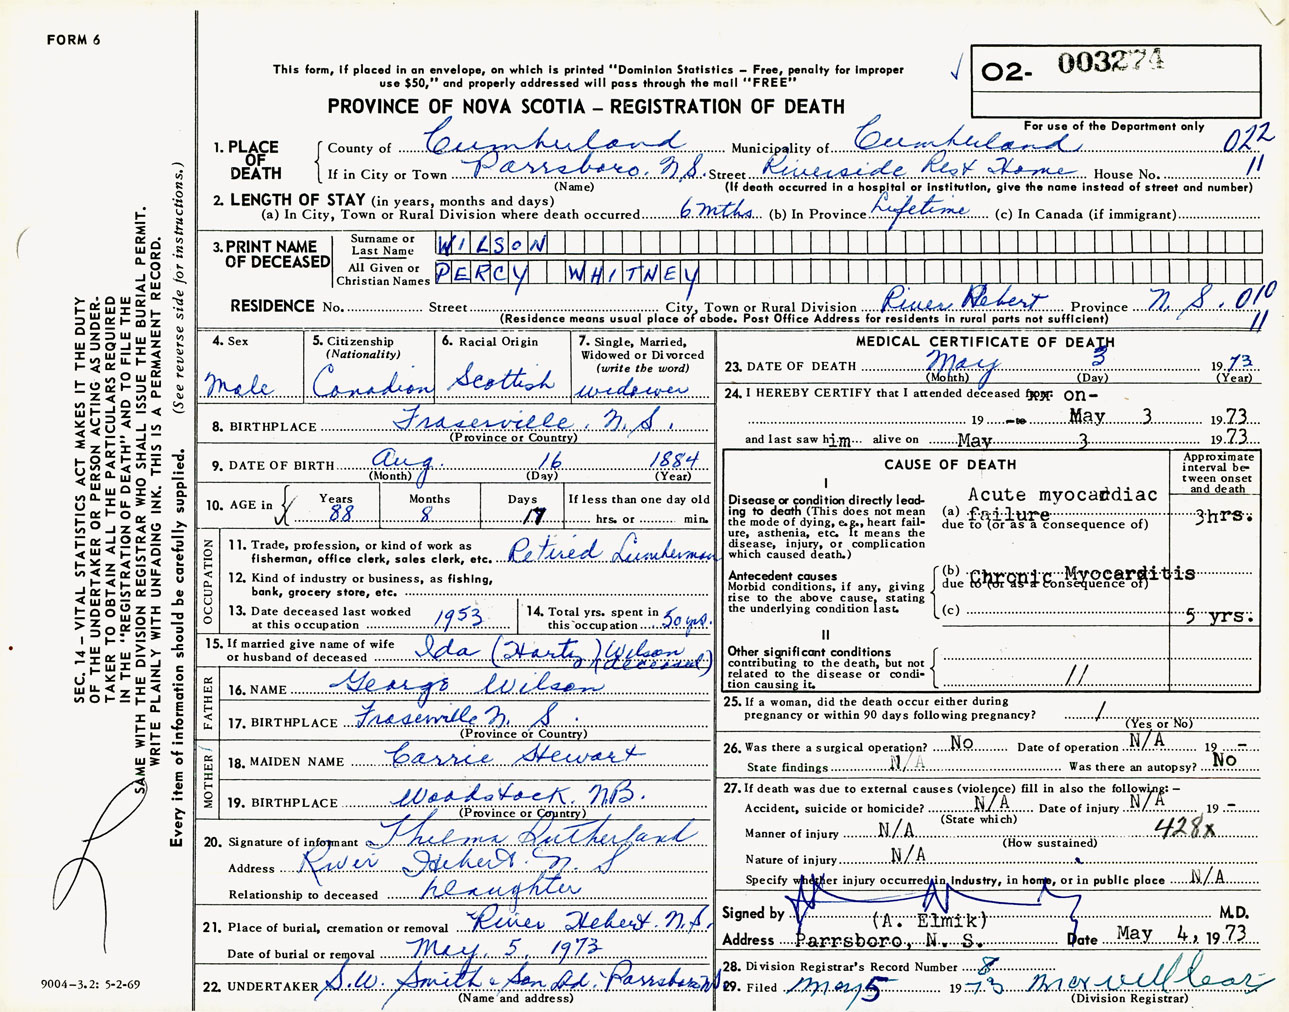 FORM 6
This form, if placed in an envelope, on which is printed "Dominion Statistics – Free, penalty for improper
use $50," and properly addressed will pass through the mail "FREE"
PROVINCE OF NOVA SCOTIA – REGISTRATION OF DEATH
O2- 003274
For use of the Department only
022
11
1. PLACE OF DEATH
County of Cumberland Municipality of Cumberland
If in City or Town Parrsboro, N.S. Street Riverside Rest Home House No.
(Name) (If death occurred in a hospital or institution, give the name instead of street and number)
2. LENGTH OF STAY (in years, months and days)
(a) In City, Town or Rural Division where death occurred 6 mths (b) In Province Lifetime (c) In Canada (if immigrant)
3. PRINT NAME OF DECEASED
Surname or Last Name WILSON
All Given or Christian Names PERCY WHITNEY
RESIDENCE No. Street City, Town or Rural Division River Hebert Province N.S. 010
11
(Residence means usual place of abode. Post Office Address for residents in rural parts not sufficient)
4. Sex Male
5. Citizenship (Nationality) Canadian
6. Racial Origin Scottish
7. Single, Married, Widowed or Divorced (write the word) widower
8. BIRTHPLACE Fraserville, N.S.
(Province or Country)
9. DATE OF BIRTH Aug. 16 1884
(Month) (Day) (Year)
10. AGE in Years 88 Months 8 Days 17 If less than one day old
hrs. or min.
OCCUPATION
11. Trade, profession, or kind of work as
fisherman, office clerk, sales clerk, etc. Retired Lumberman
12. Kind of industry or business, as fishing,
bank, grocery store, etc.
13. Date deceased last worked
at this occupation 1953
14. Total yrs. spent in
this occupation 50 yrs.
15. If married give name of wife
or husband of deceased Ida (Harty) Wilson
(deceased)
FATHER
16. NAME George Wilson
17. BIRTHPLACE Fraserville N.S.
(Province or Country)
MOTHER
18. MAIDEN NAME Carrie Stewart
19. BIRTHPLACE Woodstock, N.B.
(Province or Country)
20. Signature of informant Thelma Sutherland
Address River Hebert N.S
Relationship to deceased Daughter
21. Place of burial, cremation or removal River Hebert. N.S.
Date of burial or removal May, 5, 1973
22. UNDERTAKER S.W. Smith & Son Ltd. Parrsboro NS
(Name and address)
MEDICAL CERTIFICATE OF DEATH
23. DATE OF DEATH May 3 1973
(Month) (Day) (Year)
24. I HEREBY CERTIFY that I attended deceased from on-
19 -to May 3 1973
and last saw him alive on May 3 1973
CAUSE OF DEATH
Approximate interval between onset and death
I
Disease or condition directly lead-
ing to death (This does not mean
the mode of dying, e.g., heart fail-
ure, asthenia, etc. It means the
disease, injury, or complication
which caused death.)
(a) Acute myocardiac failure 3hrs.
due to (or as a consequence of)
Antecedent causes
Morbid conditions, if any, giving
rise to the above cause, stating
the underlying condition last.
(b) Chronic Myocarditis
due to (or as a consequence of)
(c) 5 yrs.
II
Other significant conditions
contributing to the death, but not
related to the disease or condi-
tion causing it.
//
25. If a woman, did the death occur either during
pregnancy or within 90 days following pregnancy? /
(Yes or No)
26. Was there a surgical operation? No Date of operation N/A 19 -
State findings N/A Was there an autopsy? No
27. If death was due to external causes (violence) fill in also the following: –
Accident, suicide or homicide? N/A Date of injury N/A 19 -
(State which)
428x
Manner of injury N/A
(How sustained)
Nature of injury N/A
Specify whether injury occurred in industry, in home, or in public place N/A
Signed by (A. Elmik) M.D.
Address Parrsboro, N. S. Date May 4, 1973
28. Division Registrar's Record Number 8
29. Filed May 5 1973
(Division Registrar)
SEC. 14 – VITAL STATISTICS ACT MAKES IT THE DUTY
OF THE UNDERTAKER OR PERSON ACTING AS UNDER-
TAKER TO OBTAIN ALL THE PARTICULARS REQUIRED
IN THE "REGISTRATION OF DEATH" AND TO FILE THE
SAME WITH THE DIVISION REGISTRAR WHO SHALL ISSUE THE BURIAL PERMIT.
WRITE PLAINLY WITH UNFADING INK. THIS IS A PERMANENT RECORD.
Every item of information should be carefully supplied. (See reverse side for instructions.)
9004-3.2: 5-2-69